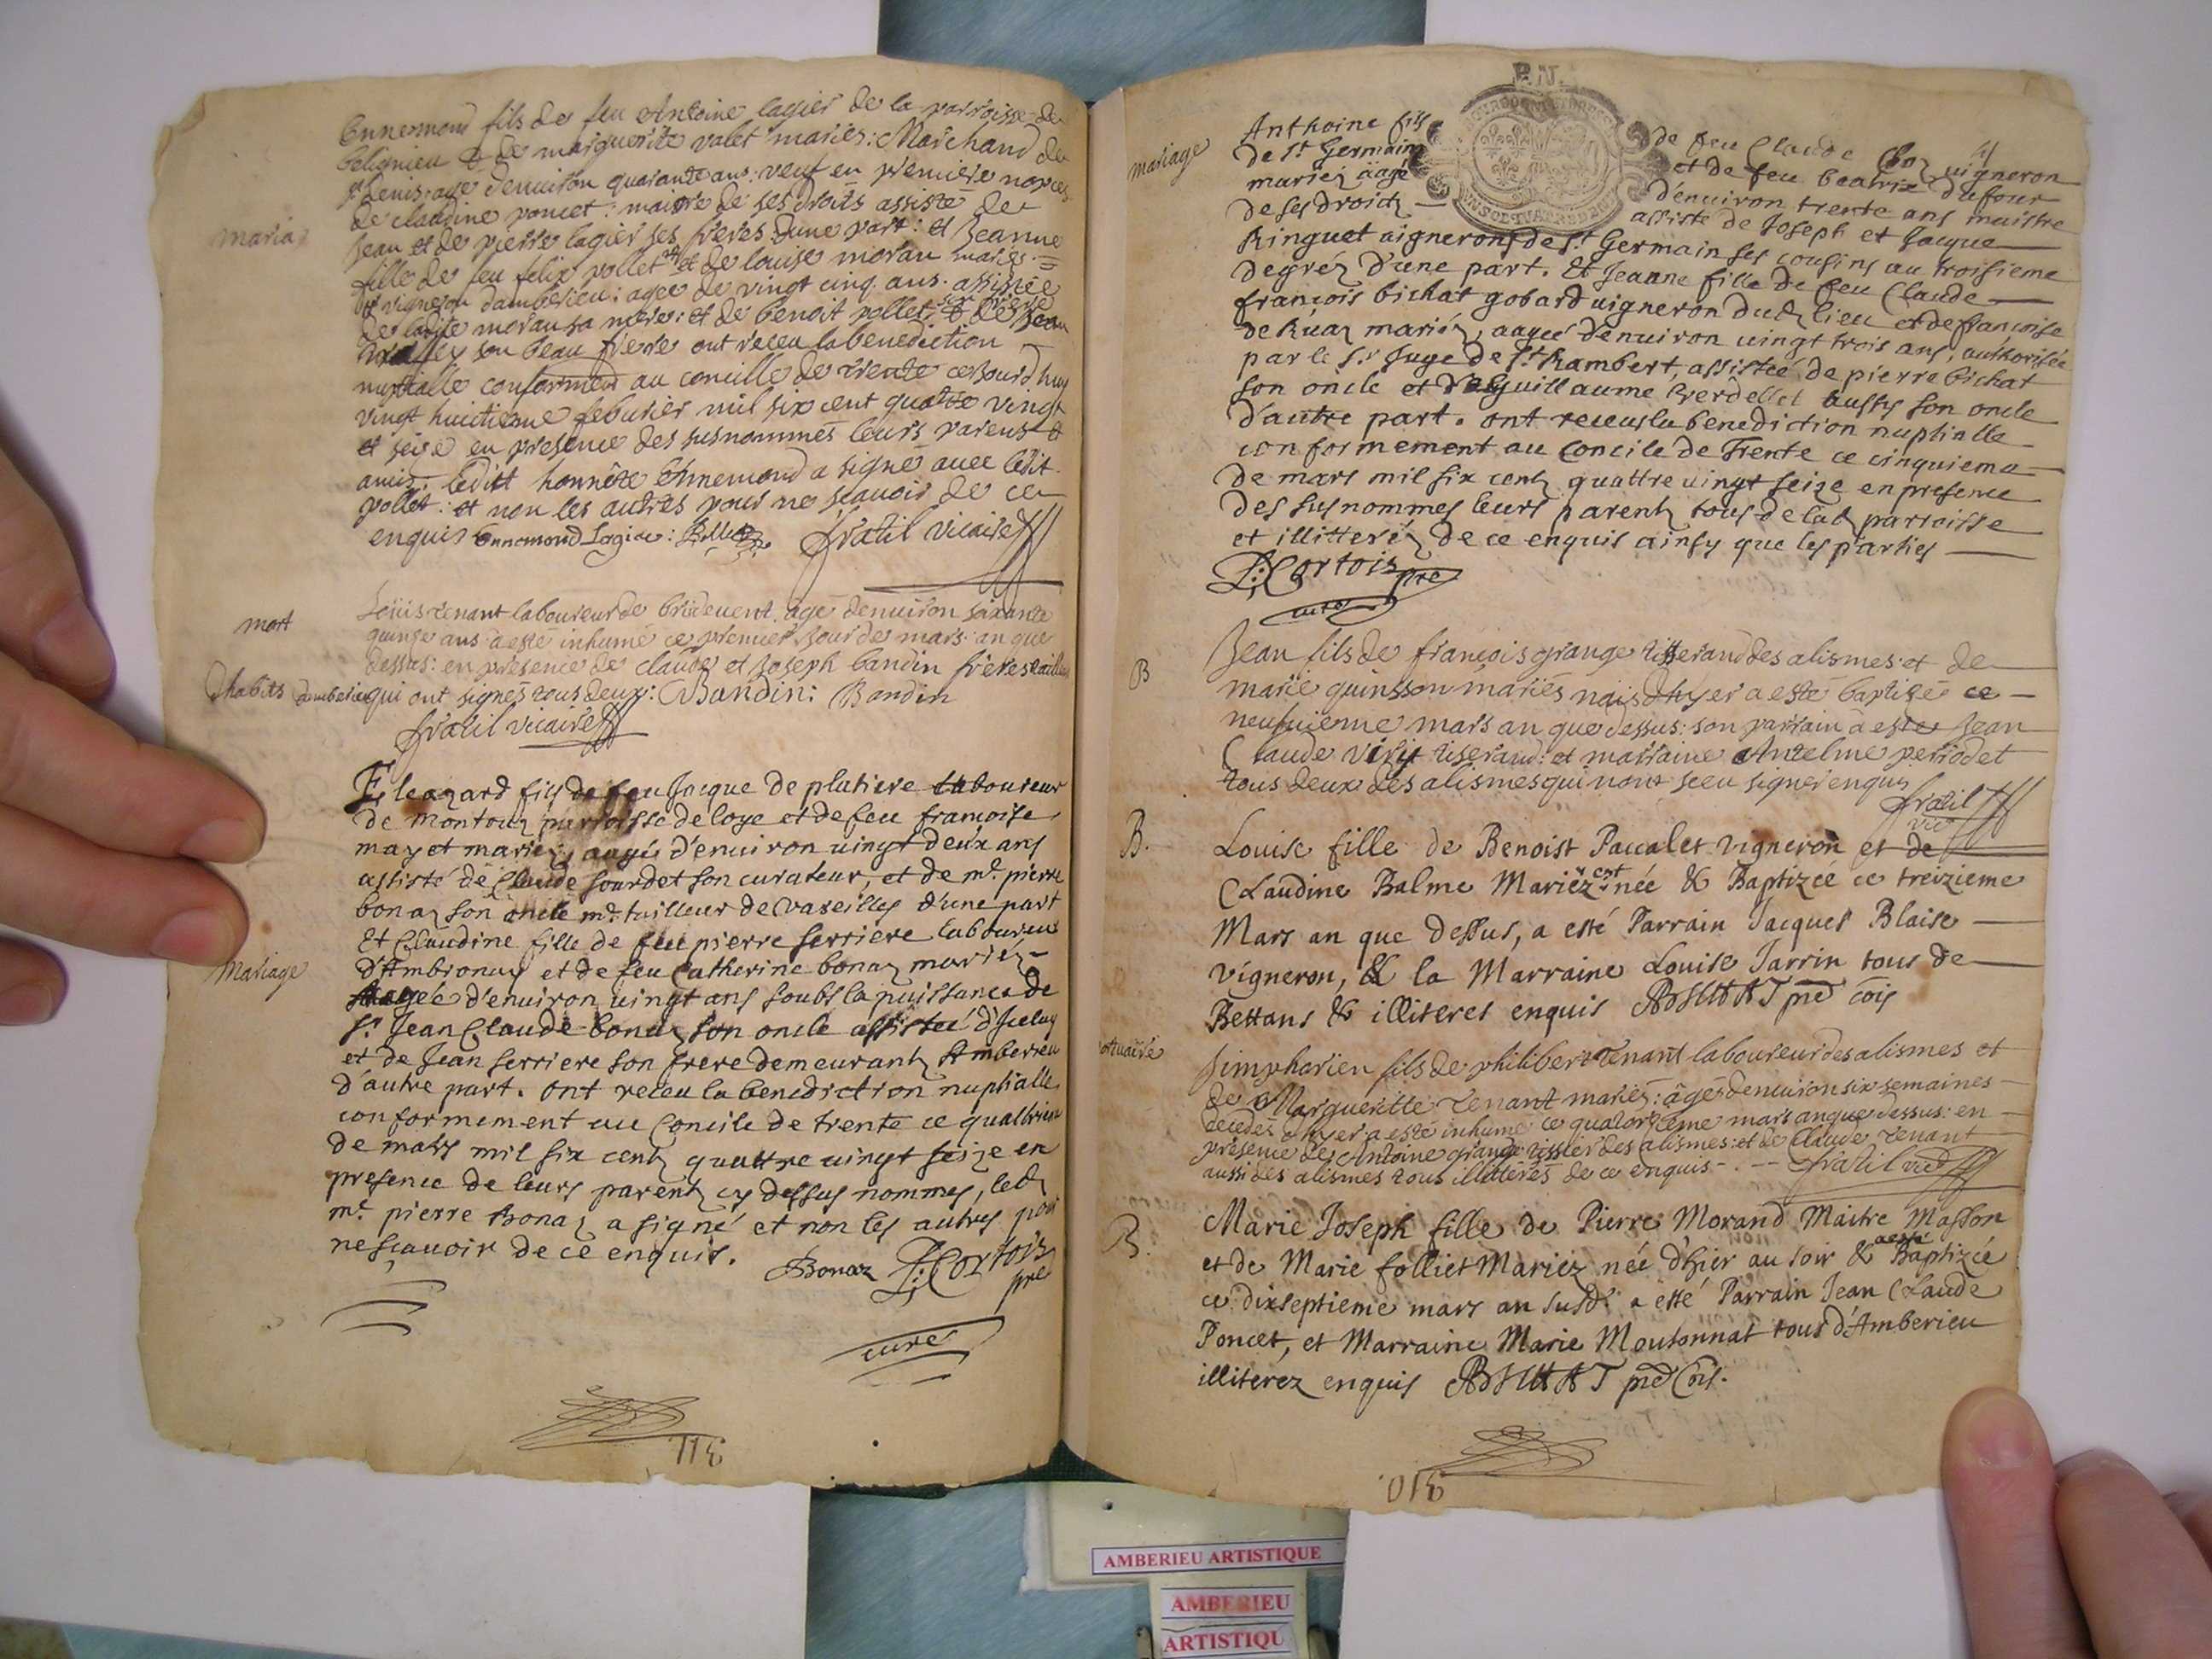 Ennemond fils de feu Antoine lagier de la parroisse de
belignieu & de marguerite valet mariés: Marchand de
st denis: agé denuiron quarante ans: veuf en premiere nopces
de claudine poncet: maitre de ses droits assisté de
maria
Jean et de pierre lagier ses freres dune part: et Jeanne
fille de feu felix pollet et de louise morau mariés =
vigneron damberieu: agee de vingt cinq ans. assistée
de ladite morau sa mere: et de benoit pollet son frere & de Jean
son beau frere ont receu la benediction
nuptialle conformem au concille de trente ce Jourd huy
vingt huictieme feburier mil six cent quatre vingt
et seize en presence des susnommés leurs parens &
amis. Ledit honnéte Ennemond a signé auec ledit
pollet: et non les autres pour ne scauoir de ce
enquis Ennemond Lagier: Pollet. fratil vicaire
mort
Loüis tenant laboureur de breydeuent. agé denuiron soixante
quinze ans a esté inhumé ce premier Jour de mars an que
dessus: en presence de claude et Joseph bandin freres
dhabits damberieu qui ont signes tous deux: Bandin: Bandin
fratil vicaire
Eleazard fils de feu Jacque de platiere laboureur
de montouz parroisse de loye et de feu francoise
mayet mariez, aagé d'enuiron uingt deux ans
assisté de Claude sourdet son curateur, et de me pierre
bonaz son oncle me tailleur de vaseilles d'une part
Et Claudine fille de feu pierre serriere laboureur
mariage
d'Ambronay et de feu Catherine bonaz mariéz
aagée d'enuiron uingt ans soubs la puissance de
sr Jean Claude bonaz son oncle assistée d'Iceluy
et de Jean serriere son frere demeurantz Amberieu
d'autre part. ont receu la benediction nuptialle
conformement au Concile de trente ce quattrieme
de mars mil six centz quattre uingt seize en
presence de leurs parentz cy dessus nommes, ledz
me pierre Bonaz a signé et non les autres pour
ne sçauoir de ce enquis. Bonaz P: Cortois
pre
curé
311
P.N.
mariage
Anthoine fils de feu Claude uigneron
de st Germain et de feu beatrix dufour
mariéz aagé d'enuiron trente ans maistre
de ses droictz — assisté de Joseph et Jacque
Ringuet uignerons de st Germain ses cousins au troisieme
degréz d'une part. Et Jeanne fille de feu Claude
francois bichat gobard uigneron dudz lieu et de francoise
de Ruaz mariéz, aagée denuiron uingt trois ans, authorisée
par le sr Juge de st Rambert, assistée de pierre bichat
son oncle et de Guillaume Verdellet aussy son oncle
d'autre part. ont receus la benediction nuptialle
conformement au Concile de Trente ce cinquieme
de mars mil six centz quattre uingt seize en presence
des susnommes leurs parentz tous de ladz parroisse
et illitteréz de ce enquis ainsy que les parties
P: Cortois pre
curé
B
Jean fils de francois grange tisserand des alismes et de
marie quinsson mariés nais dhyer a esté baptisé ce
neufuieme mars an que dessus: son parrain a esté Jean
Claude tiserand: et marraine Antelme periodet
tous deux des alismes qui nont sceu signer enquis
fratil
vic
B.
Louise fille de Benoist Pascalet vigneron et de
Claudine Balme Mariéz est née & Baptizée ce treizieme
Mars an que dessus, a esté Parrain Jacques Blaise
vigneron, & la Marraine Louise Jarrin tous de
Bettans & illiteres enquis
mortuaire
simphorien fils de philibert tenant laboureur des alismes et
de Marguerite tenant mariés: agé denuiron six semaines
decedez dhyer a esté inhumé ce quatorzieme mars an que dessus: en
presence de Antoine grange tissier des alismes: et de Claude tenant
aussi des alismes tous illitterés de ce enquis fratil vic
B.
Marie Joseph fille de Pierre Morand Maitre Masson
et de Marie folliet Mariéz née d'hier au soir & a esté Baptizée
ce dixseptieme mars an susd. a esté Parrain Jean Claude
Poncet, et Marraine Marie Moutonnat tous d'Amberieu
illiterez enquis
310
AMBERIEU ARTISTIQUE
AMBERIEU
ARTISTIQU